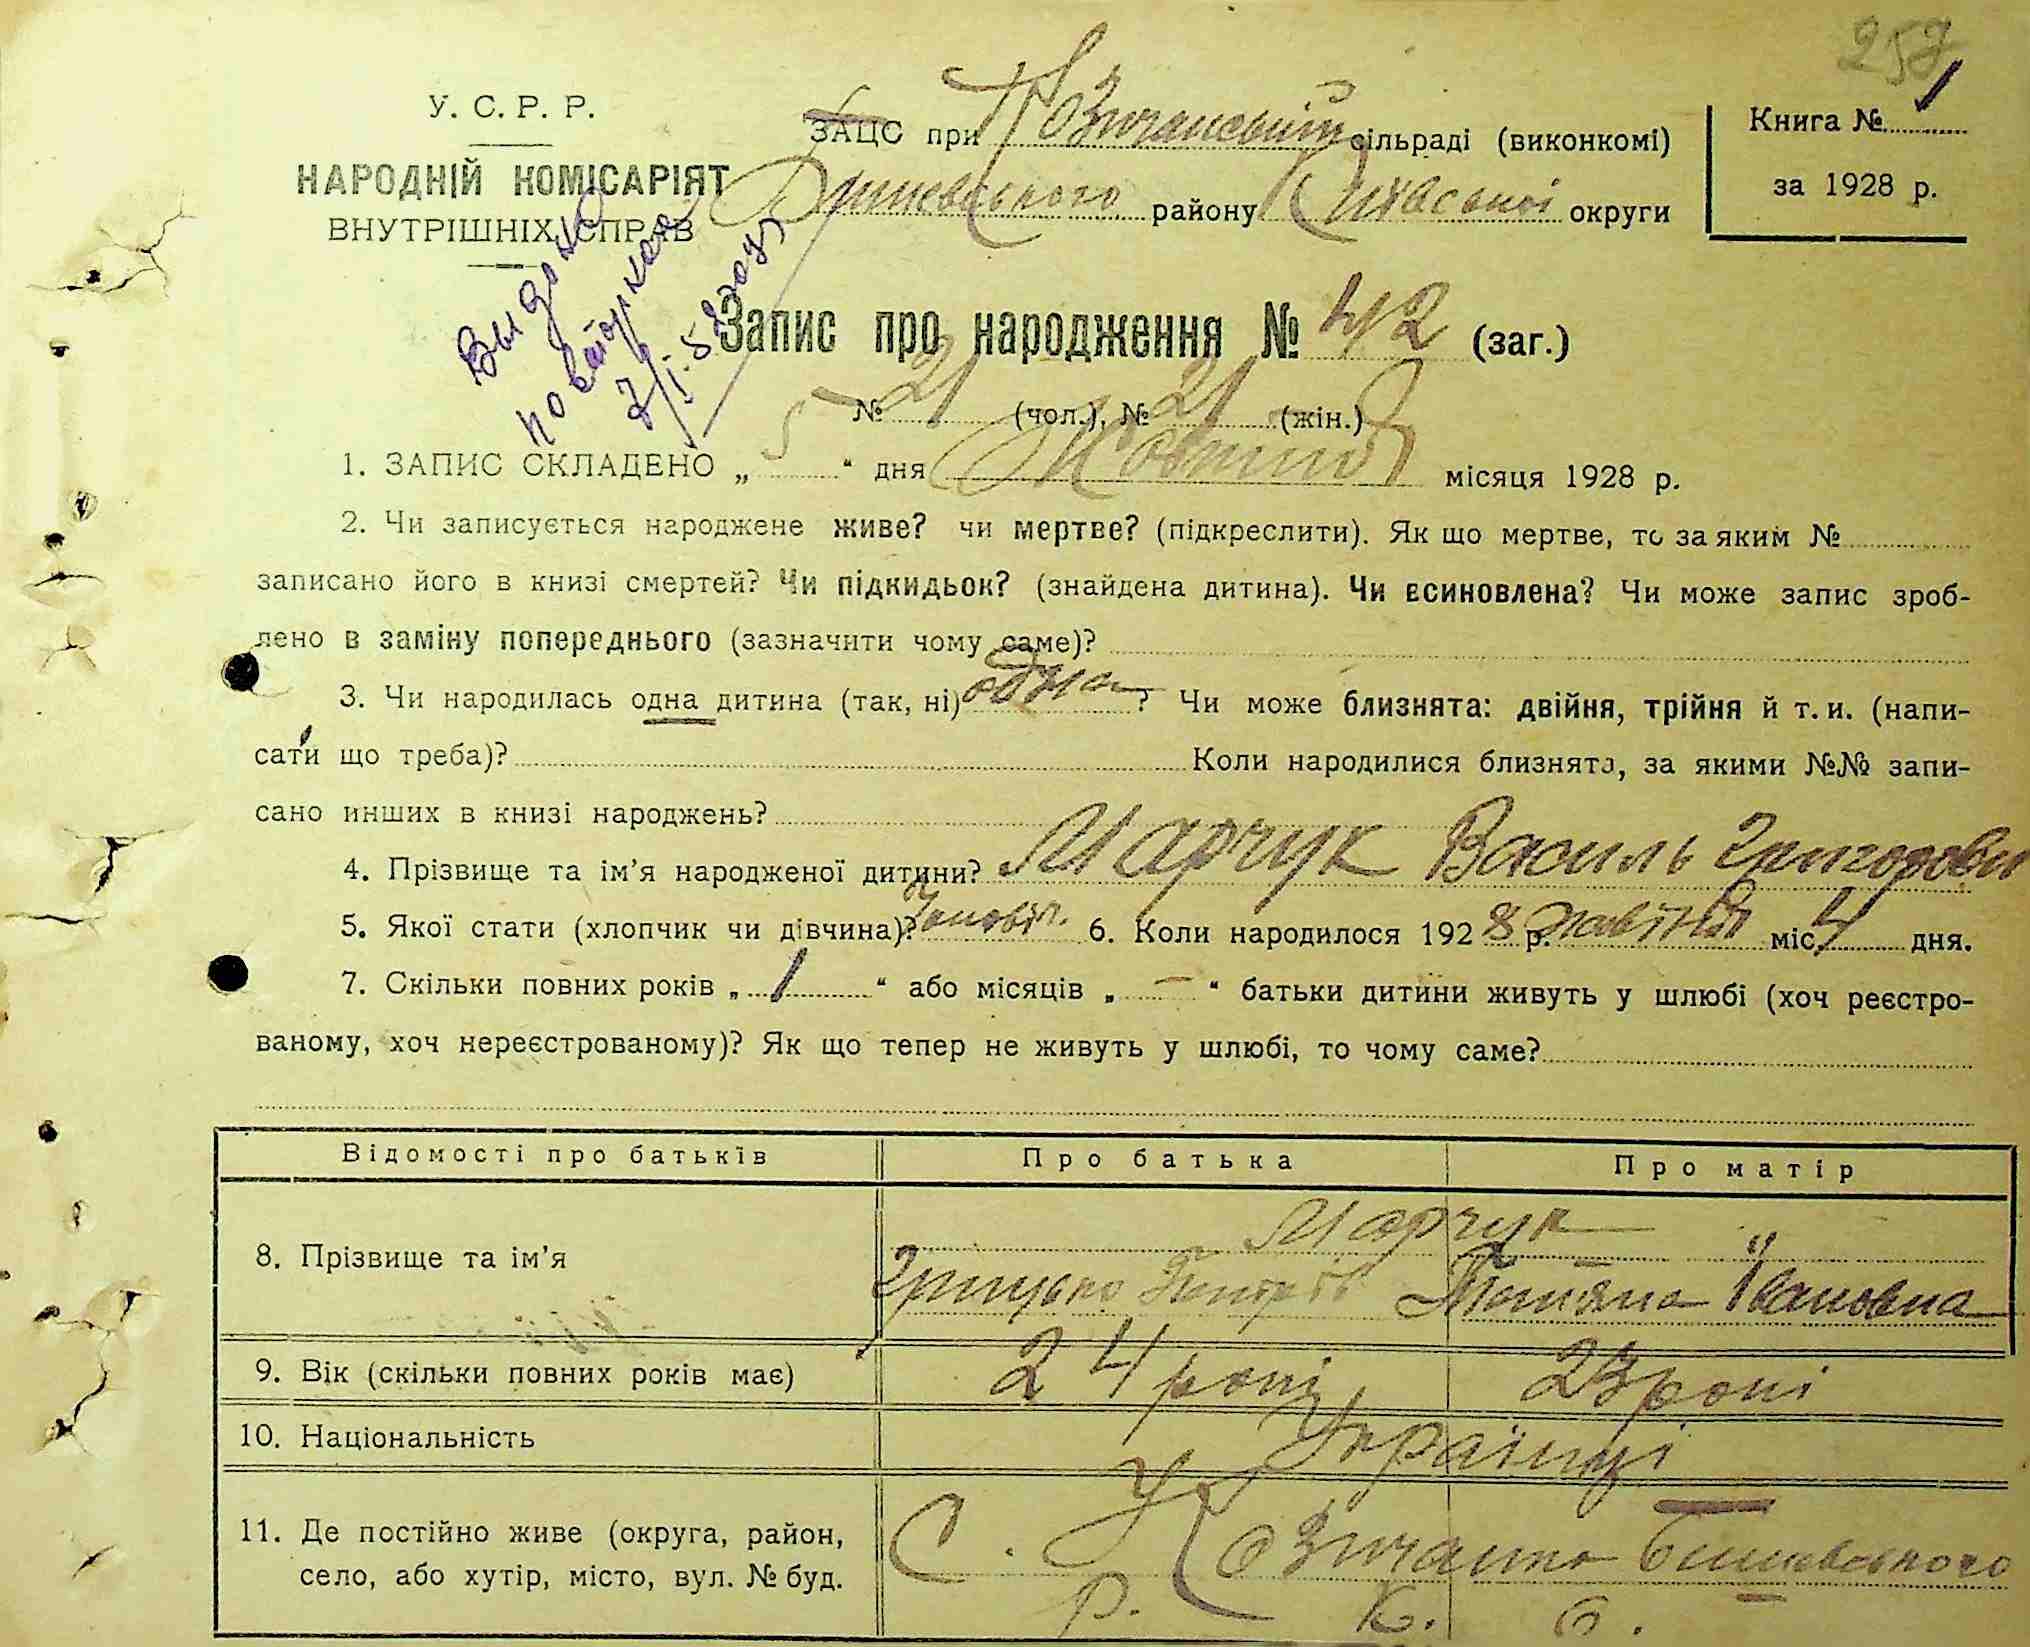 257
У. С. Р. Р.
НАРОДНІЙ КОМІСАРІЯТ
ВНУТРІШНІХ СПРАВ
ЗАЦС при Козичанській сільраді (виконкомі)
району Київської округи
Книга № 1
за 1928 р.
Выдано
7/I-52
Запис про народження № 42 (заг.)
№ 21 (чол.), № 21 (жін.)
1. ЗАПИС СКЛАДЕНО „ 5 “ дня Жовтня місяця 1928 р.
2. Чи записується народжене живе? чи мертве? (підкреслити). Як що мертве, то за яким №
записано його в книзі смертей? Чи підкидьок? (знайдена дитина). Чи всиновлена? Чи може запис зроб-
лено в заміну попереднього (зазначити чому саме)?
3. Чи народилась одна дитина (так, ні) одна ? Чи може близнята: двійня, трійня й т. и. (напи-
сати що треба)? Коли народилися близнята, за якими №№ запи-
сано инших в книзі народжень?
4. Прізвище та ім’я народженої дитини? Марчук Василь Григорович
5. Якої стати (хлопчик чи дівчина)? 6. Коли народилося 1928 р. жовтня міс. 4 дня.
7. Скільки повних років „ 1 “ або місяців „ — “ батьки дитини живуть у шлюбі (хоч реєстро-
ваному, хоч нереєстрованому)? Як що тепер не живуть у шлюбі, то чому саме?
Відомості про батьків Про батька Про матір
8. Прізвище та ім’я Марчук — "
Грицько Тетяна Івановна
9. Вік (скільки повних років має) 24 роки 23 роки
10. Національність Українці
11. Де постійно живе (округа, район,
село, або хутір, місто, вул. № буд.
С. Козичанка Бишевського
р. К. о.